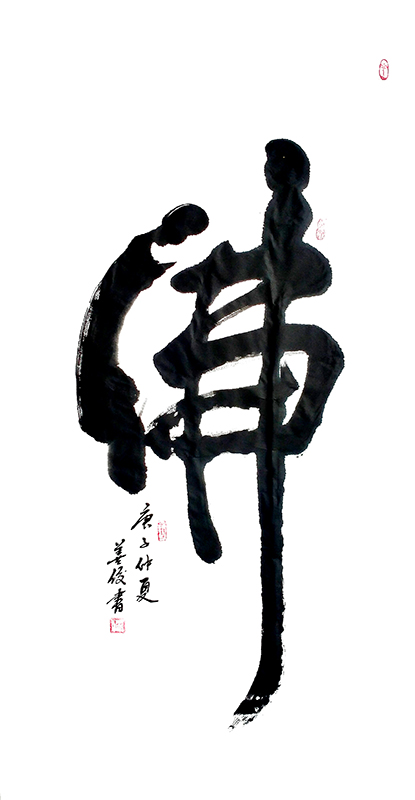 佛
庚子仲夏
姜俊書